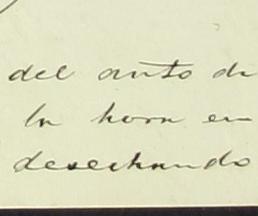 del auto de
la hora en
desechando